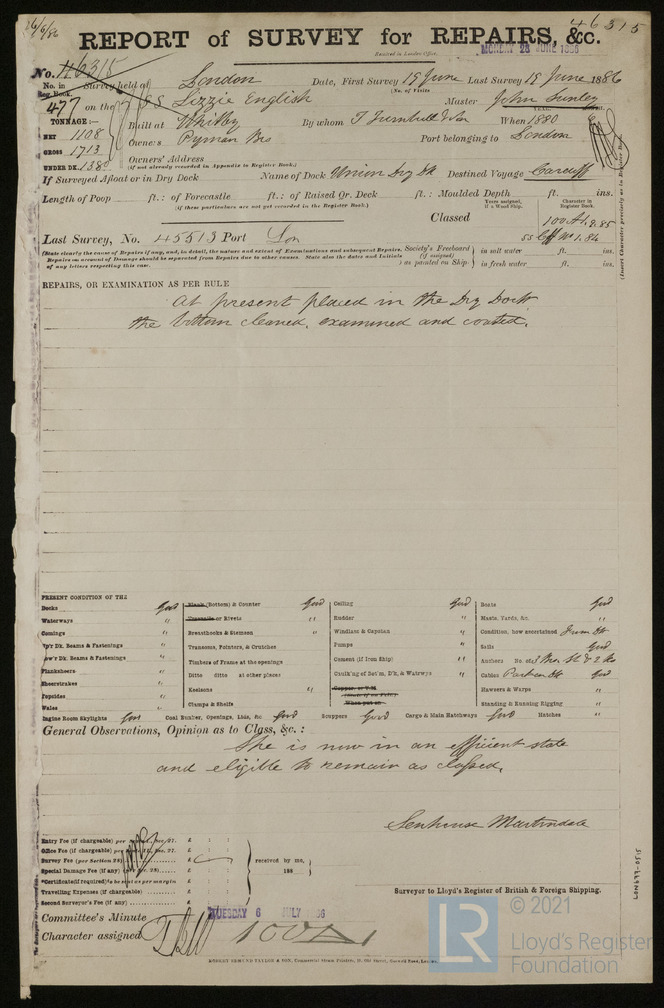 26/6/86
46315
REPORT of SURVEY for REPAIRS, &c.
Received in London Office,
MONDAY 28 JUNE 1886
No. 46315
No. in Reg. Book.
Survey held at London Date, First Survey 19 June Last Survey 19 June 1886
(No. of Visits
477 on the S.S. Lizzie English Master
TONNAGE:—
Built at Whitby By whom T Turnbull & Son When 1880
NET 1108
Owners Pyman Bros Port belonging to London
GROSS 1713
Owners' Address
(if not already recorded in Appendix to Register Book.)
UNDER DK. 1380
If Surveyed Afloat or in Dry Dock Name of Dock Union Dry Dk Destined Voyage Cardiff
Length of Poop ft.: of Forecastle ft.: of Raised Qr. Deck ft.: Moulded Depth ft. ins.
(if these particulars are not yet recorded in the Register Book.)
Years assigned, if a Wood Ship.
Character in Register Book.
(Insert Character precisely as in Register Book.)
Classed 100 A1. 9.85
Last Survey, No. 45513 Port Lon
(State clearly the cause of Repairs if any, and, in detail, the nature and extent of Examinations and subsequent Repairs.
Repairs on account of Damage should be separated from Repairs due to other causes. State also the dates and initials
of any letters respecting this case.
Society's Freeboard (if assigned) as painted on Ship
in salt water ft. ins.
in fresh water ft. ins.
REPAIRS, OR EXAMINATION AS PER RULE
At present placed in the Dry Dock
the bottom cleaned, examined and coated.
PRESENT CONDITION OF THE
Decks Good
Waterways "
Comings "
Up'r Dk. Beams & Fastenings "
Low'r Dk. Beams & Fastenings "
Planksheers "
Sheerstrakes "
Topsides "
Wales "
Plank (Bottom) & Counter Good
Treenails or Rivets "
Breasthooks & Stemson "
Transoms, Pointers, & Crutches
Timbers of Frame at the openings
Ditto ditto at other places
Keelsons "
Clamps & Shelfs
Ceiling Good
Rudder "
Windlass & Capstan "
Pumps "
Cement (if Iron Ship) "
Caulk'g of Bot'm, D'k, & Waterws "
Copper, or Y.M.
When put on
Boats Good
Masts, Yards, &c. "
Condition, how ascertained From Dk
Sails Good
Anchors No. of 3 Bra. St & 2 Ks
Cables Good
Hawsers & Warps "
Standing & Running Rigging "
Engine Room Skylights Good Coal Bunker, Openings, Lids, &c Good Scuppers Good Cargo & Main Hatchways Good Hatches "
General Observations, Opinion as to Class, &c.:
She is now in an efficient state
and eligible to remain as classed.
Senhouse Martindale
Surveyor to Lloyd's Register of British & Foreign Shipping.
Entry Fee (if chargeable) per Sec. 27. £ : :
Office Fee (if chargeable) per Sec. 27. £ : :
Survey Fee (per Section 28) £
Special Damage Fee (if any) £ : :
*Certificate (if required) to be sent as per margin £ : :
Travelling Expenses (if chargeable) £ : :
Second Surveyor's Fee (if any) £ : :
received by me,
188
Committee's Minute TUESDAY 6 JULY 1886
Character assigned 100A1
ROBERT EDMUND TAYLOR & SON, Commercial Steam Printers, 19, Old Street, Goswell Road, London.
LON699-0515
LR
© 2021
Lloyd's Register
Foundation